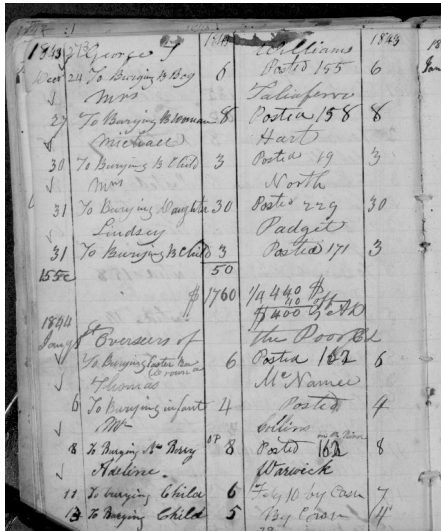 1843 George J 1843 Williams 1843
Decr 24 To Burying B Boy 6 Posted 155 6
Mrs Taliaferro
27 To Burying B Woman 8 Posted 158 8
Michael Hart
30 To Burying B Child 3 Posted 19 3
Mrs North
31 To Burying Daughter 30 Posted 229 30
Lindsey Padget
31 To Burying B Child 3 Posted 171 3
50
$ 1760 440 $
$ 400
1844
Jany Overseers of the Poor
To Burying 6 Posted 162 6
Thomas McNamee
6 To Burying infant 4 Posted 4
Mr Collins
8 To Burying Mrs Berry 8 Posted 162 8
Adeline Warwick
11 To burying Child 6 10 by Cash 7
13 To Burying Child 5 By Cash 4